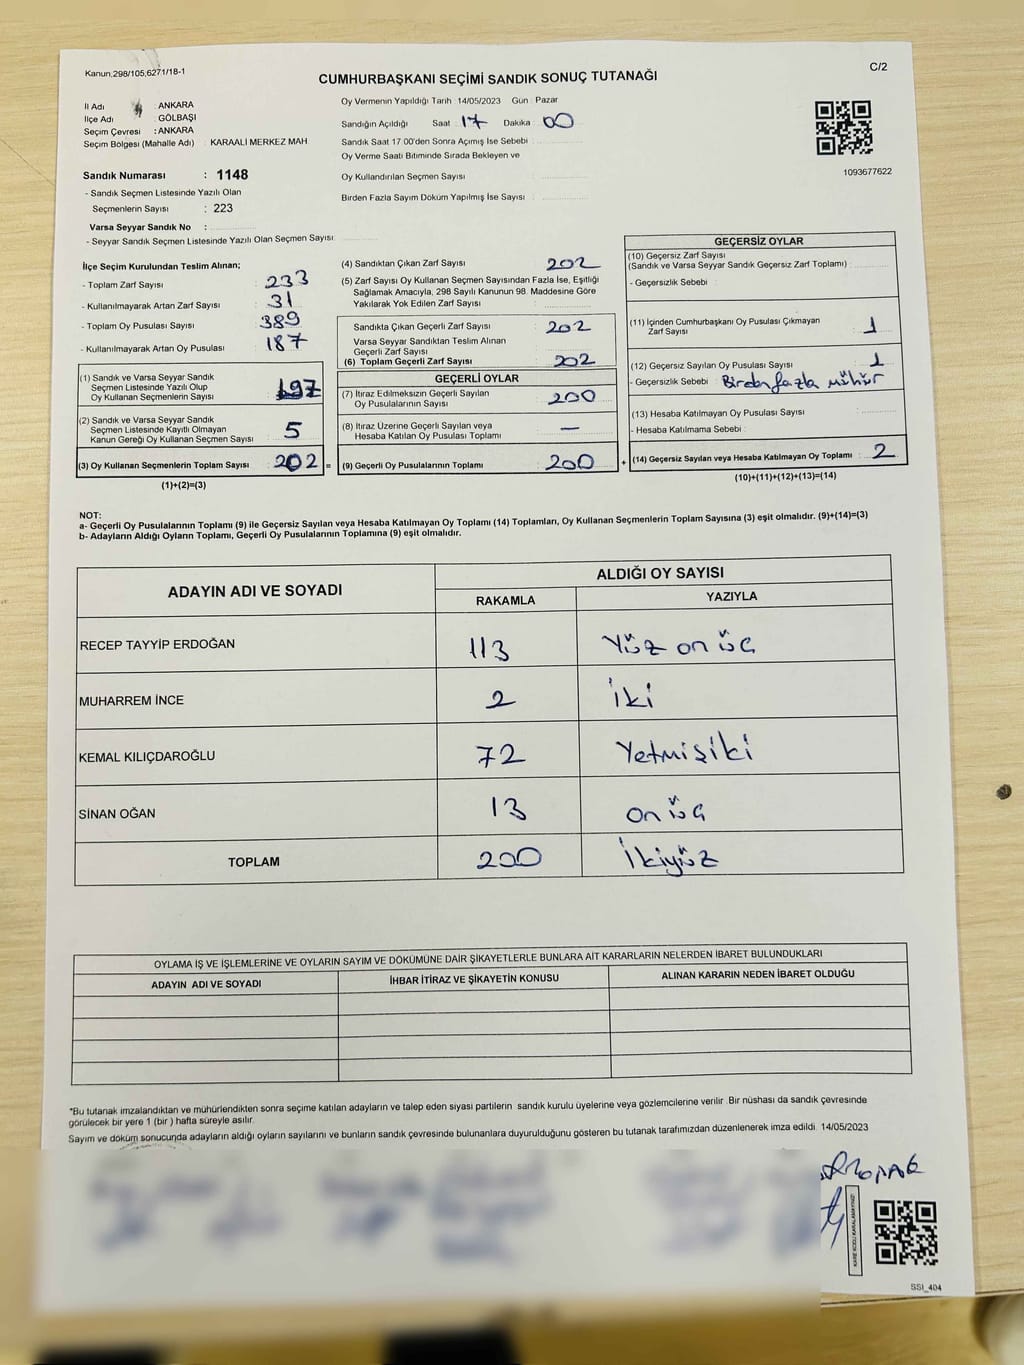 Kanun,298/105,6271/18-1
C/2
CUMHURBAŞKANI SEÇİMİ SANDIK SONUÇ TUTANAĞI
İl Adı : ANKARA
İlçe Adı : GÖLBAŞI
Seçim Çevresi : ANKARA
Seçim Bölgesi (Mahalle Adı) : KARAALİ MERKEZ MAH
Sandık Numarası : 1148
- Sandık Seçmen Listesinde Yazılı Olan
Seçmenlerin Sayısı : 223
Varsa Seyyar Sandık No :
- Seyyar Sandık Seçmen Listesinde Yazılı Olan Seçmen Sayısı
Oy Vermenin Yapıldığı Tarih 14/05/2023 Gün : Pazar
Sandığın Açıldığı Saat 17 Dakika : 00
Sandık Saat 17 00'den Sonra Açımış İse Sebebi :
Oy Verme Saati Bitiminde Sırada Bekleyen ve
Oy Kullandırılan Seçmen Sayısı
Birden Fazla Sayım Döküm Yapılmış İse Sayısı :
1093677622
İlçe Seçim Kurulundan Teslim Alınan;
- Toplam Zarf Sayısı : 233
- Kullanılmayarak Artan Zarf Sayısı : 31
- Toplam Oy Pusulası Sayısı : 389
- Kullanılmayarak Artan Oy Pusulası : 187
(1) Sandık ve Varsa Seyyar Sandık
Seçmen Listesinde Yazılı Olup
Oy Kullanan Seçmenlerin Sayısı : 197
(2) Sandık ve Varsa Seyyar Sandık
Seçmen Listesinde Kayıtlı Olmayan
Kanun Gereği Oy Kullanan Seçmen Sayısı 5
(3) Oy Kullanan Seçmenlerin Toplam Sayısı : 202 =
(1)+(2)=(3)
(4) Sandıktan Çıkan Zarf Sayısı : 202
(5) Zarf Sayısı Oy Kullanan Seçmen Sayısından Fazla İse, Eşitliği
Sağlamak Amacıyla, 298 Sayılı Kanunun 98. Maddesine Göre
Yakılarak Yok Edilen Zarf Sayısı :
Sandıkta Çıkan Geçerli Zarf Sayısı : 202
Varsa Seyyar Sandıktan Teslim Alınan
Geçerli Zarf Sayısı
(6) Toplam Geçerli Zarf Sayısı : 202
GEÇERLİ OYLAR
(7) İtiraz Edilmeksizin Geçerli Sayılan
Oy Pusulalarının Sayısı : 200
(8) İtiraz Üzerine Geçerli Sayılan veya
Hesaba Katılan Oy Pusulaları Toplamı : —
(9) Geçerli Oy Pusulalarının Toplamı : 200 +
GEÇERSİZ OYLAR
(10) Geçersiz Zarf Sayısı
(Sandık ve Varsa Seyyar Sandık Geçersiz Zarf Toplamı) :
- Geçersizlik Sebebi :
(11) İçinden Cumhurbaşkanı Oy Pusulası Çıkmayan
Zarf Sayısı : 1
(12) Geçersiz Sayılan Oy Pusulası Sayısı : 1
- Geçersizlik Sebebi : Birden fazla mühür
(13) Hesaba Katılmayan Oy Pusulası Sayısı :
- Hesaba Katılmama Sebebi :
(14) Geçersiz Sayılan veya Hesaba Katılmayan Oy Toplamı : 2
(10)+(11)+(12)+(13)=(14)
NOT:
a- Geçerli Oy Pusulalarının Toplamı (9) ile Geçersiz Sayılan veya Hesaba Katılmayan Oy Toplamı (14) Toplamları, Oy Kullanan Seçmenlerin Toplam Sayısına (3) eşit olmalıdır. (9)+(14)=(3)
b- Adayların Aldığı Oyların Toplamı, Geçerli Oy Pusulalarının Toplamına (9) eşit olmalıdır.
ADAYIN ADI VE SOYADI
ALDIĞI OY SAYISI
RAKAMLA YAZIYLA
RECEP TAYYİP ERDOĞAN 113 Yüz on üç
MUHARREM İNCE 2 iki
KEMAL KILIÇDAROĞLU 72 Yetmişiki
SİNAN OĞAN 13 on üç
TOPLAM 200 İkiyüz
OYLAMA İŞ VE İŞLEMLERİNE VE OYLARIN SAYIM VE DÖKÜMÜNE DAİR ŞİKAYETLERLE BUNLARA AİT KARARLARIN NELERDEN İBARET BULUNDUKLARI
ADAYIN ADI VE SOYADI İHBAR İTİRAZ VE ŞİKAYETİN KONUSU ALINAN KARARIN NEDEN İBARET OLDUĞU
*Bu tutanak imzalandıktan ve mühürlendikten sonra seçime katılan adayların ve talep eden siyasi partilerin sandık kurulu üyelerine veya gözlemcilerine verilir. Bir nüshası da sandık çevresinde
görülecek bir yere 1 (bir ) hafta süreyle asılır.
Sayım ve döküm sonucunda adayların aldığı oyların sayılarını ve bunların sandık çevresinde bulunanlara duyurulduğunu gösteren bu tutanak tarafımızdan düzenlenerek imza edildi. 14/05/2023
KARE KODU KARALAMAYINIZ!
SSI_404